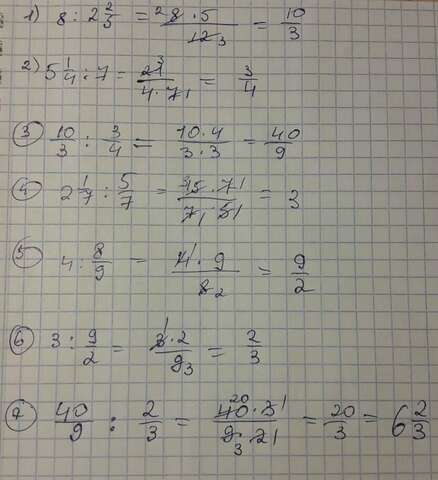 1) 8 : 2 2/3 = 8·5/12 = 10/3
2) 5 1/4 : 7 = 21/4·7 = 3/4
3) 10/3 : 3/4 = 10·4/3·3 = 40/9
4) 2 1/7 : 5/7 = 15·7/7·5 = 3
5) 4 : 8/9 = 4·9/8 = 9/2
6) 3 : 9/2 = 3·2/9 = 2/3
7) 40/9 : 2/3 = 40·3/9·2 = 20/3 = 6 2/3